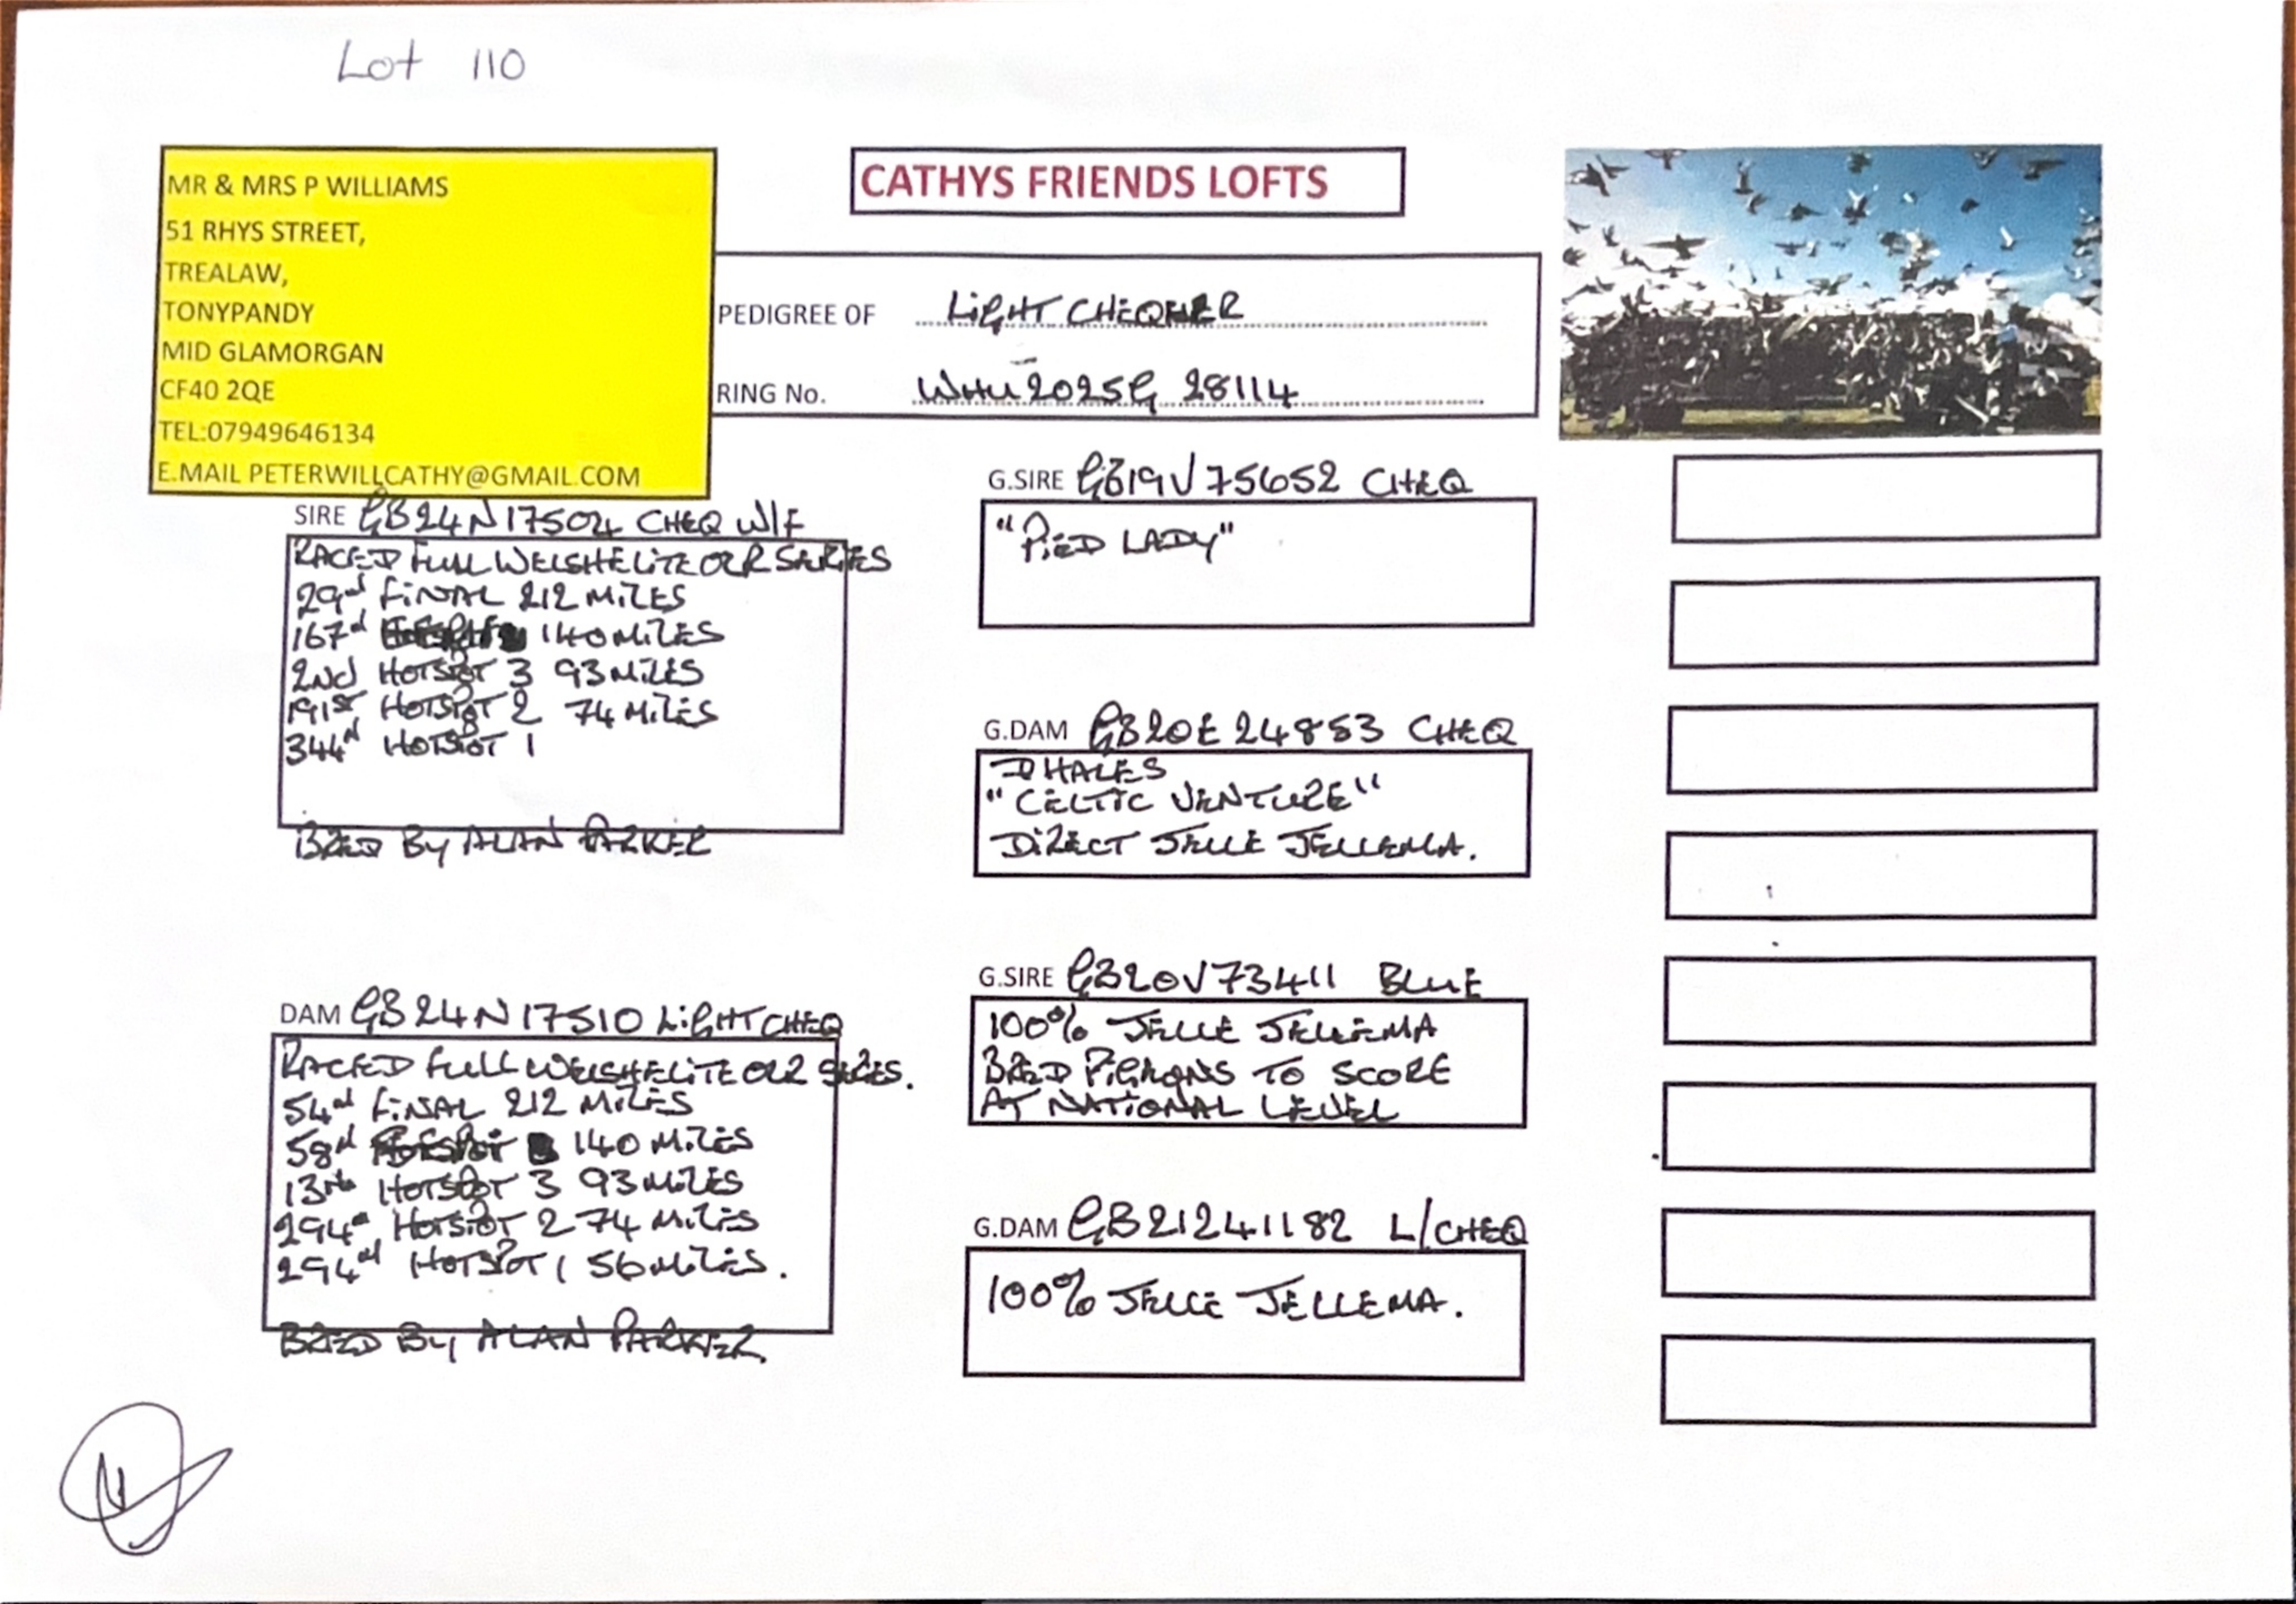 Lot 110
MR & MRS P WILLIAMS
51 RHYS STREET,
TREALAW,
TONYPANDY
MID GLAMORGAN
CF40 2QE
TEL:07949646134
E.MAIL PETERWILLCATHY@GMAIL.COM
CATHYS FRIENDS LOFTS
PEDIGREE OF LIGHT CHEQUER
RING No. WHU 2025G 28114
SIRE GB24N17504 CHEQ W/F
RACED FULL WELSH ELITE OLR SERIES
29th FINAL 212 MILES
167th 140 MILES
2ND HOTSPOT 3 93 MILES
191ST HOTSPOT 2 74 MILES
344th HOTSPOT 1
BRED BY ALAN PARKER
DAM GB24N17510 LIGHT CHEQ
RACED FULL WELSH ELITE OLR SERIES.
54th FINAL 212 MILES
58th 140 MILES
13th HOTSPOT 3 93 MILES
294th HOTSPOT 2 74 MILES
294th HOTSPOT 1 56 MILES.
BRED BY ALAN PARKER
G.SIRE GB19V75652 CHEQ
"PIED LADY"
G.DAM GB20E24853 CHEQ
D HALES
"CELTIC VENTURE"
DIRECT JELLE JELLEMA.
G.SIRE GB20V73411 BLUE
100% JELLE JELLEMA
BRED PIGEONS TO SCORE
AT NATIONAL LEVEL
G.DAM GB21241182 L/CHEQ
100% JELLE JELLEMA.